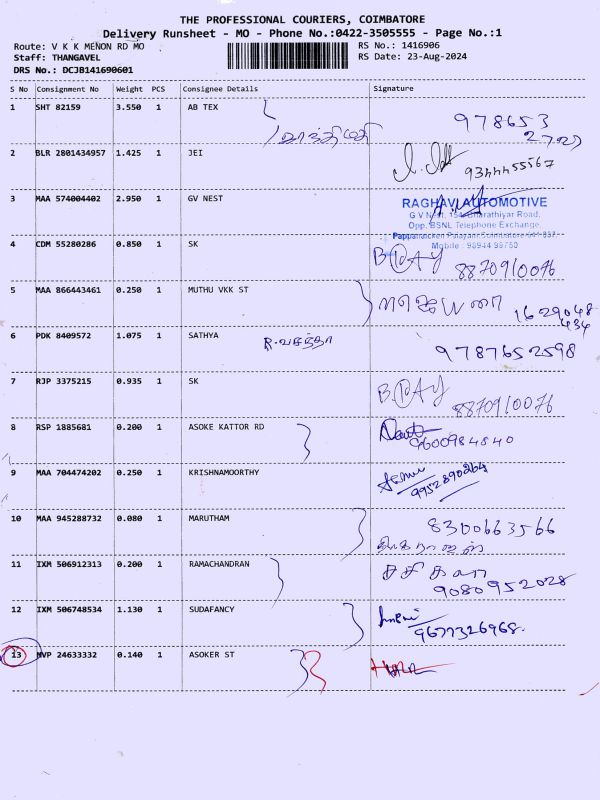 THE PROFESSIONAL COURIERS, COIMBATORE
Delivery Runsheet - MO - Phone No.:0422-3505555 - Page No.:1
Route: V K K MENON RD MO
RS No.: 1416906
Staff: THANGAVEL
RS Date: 23-Aug-2024
DRS No.: DCJB141690601
S No Consignment No Weight PCS Consignee Details Signature
1 SHT 82159 3.550 1 AB TEX
978653
2 BLR 2801434957 1.425 1 JEI
9344455567
3 MAA 574004402 2.950 1 GV NEST
RAGHAV AUTOMOTIVE
G V Nest, 154, Bharathiyar Road,
Opp. BSNL Telephone Exchange,
Pappanaicken Palayam, Coimbatore 641 037
Mobile : 98944 99750
4 CDM 55280286 0.850 1 SK
8870910076
5 MAA 866443461 0.250 1 MUTHU VKK ST
1629048
434
6 PDK 8409572 1.075 1 SATHYA R.வசந்தா
9787652598
7 RJP 3375215 0.935 1 SK
8870910076
8 RSP 1885681 0.200 1 ASOKE KATTOR RD
9600984840
9 MAA 704474202 0.250 1 KRISHNAMOORTHY
9952890264
10 MAA 945288732 0.080 1 MARUTHAM
8300663566
11 IXM 506912313 0.200 1 RAMACHANDRAN
சசிகலா
9080952028
12 IXM 506748534 1.130 1 SUDAFANCY
9677326968.
13 MVP 24633332 0.140 1 ASOKER ST